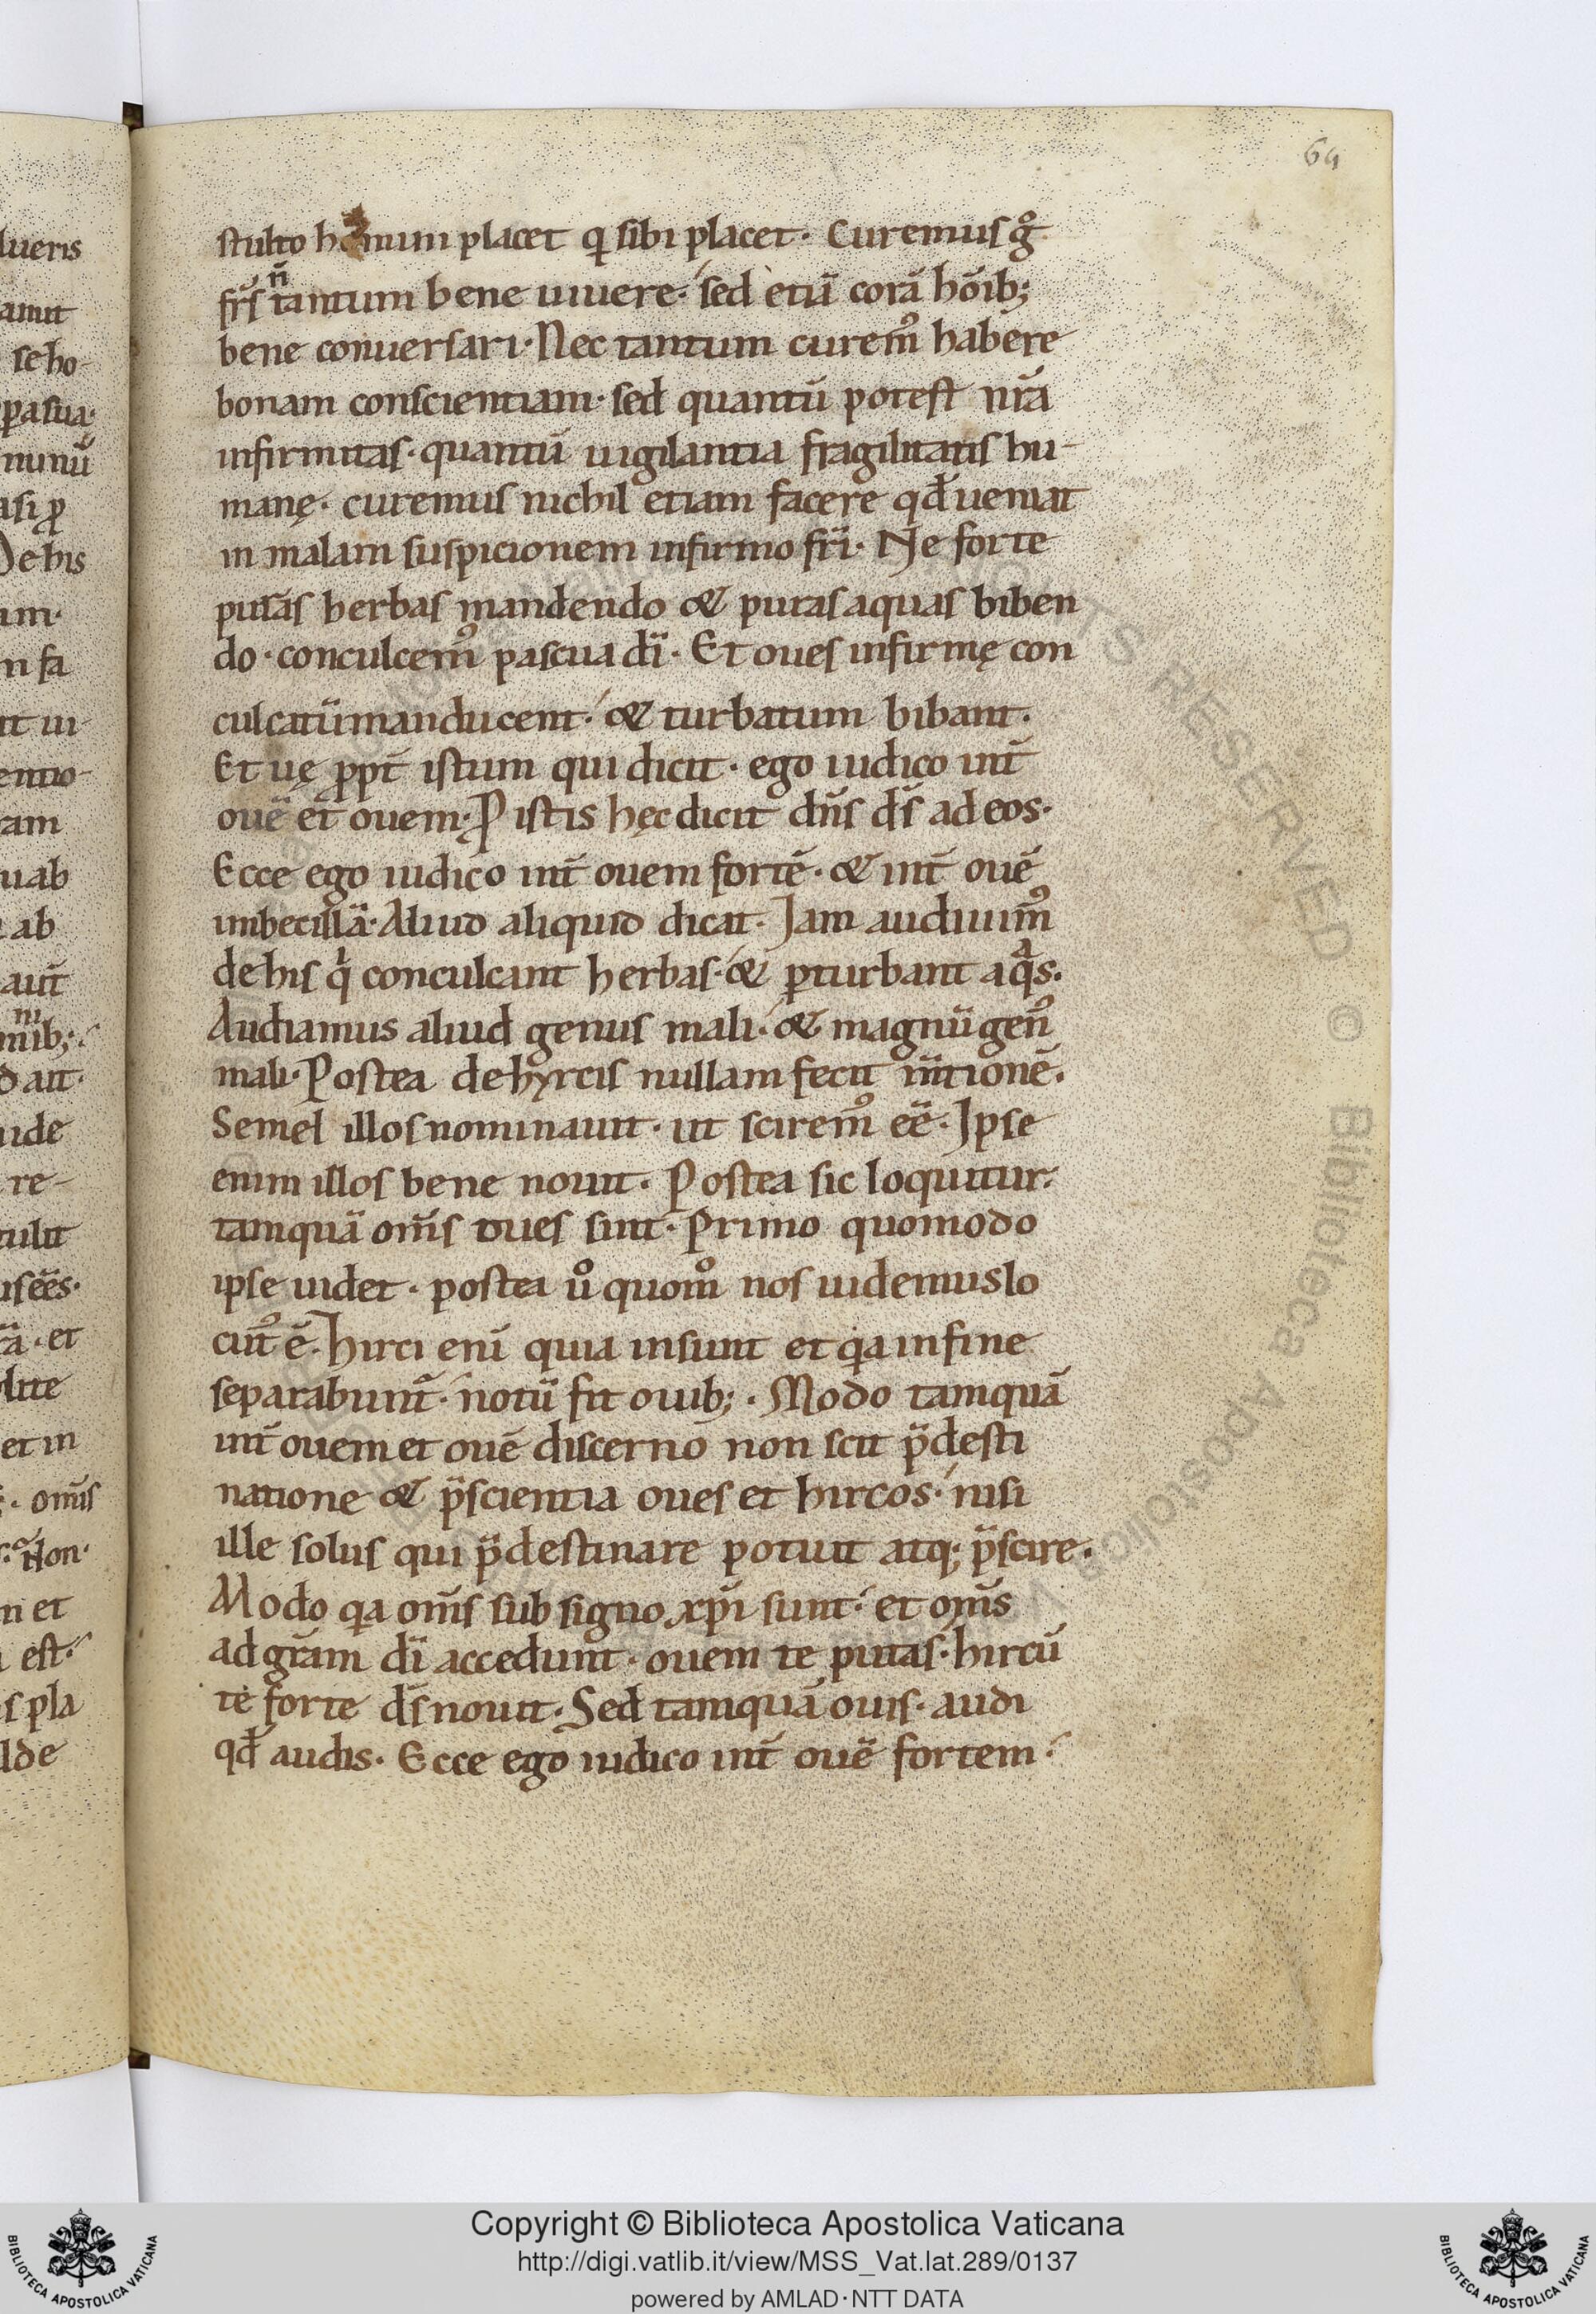 64
stulto hominum placet q sibi placet. Curemus g̊
fr̄s n̄ tantum bene uiuere. sed etiā corā hōib;
bene conuersari. Nec tantum curem᷒ habere
bonam conscientiam. sed quantū potest nr̄a
infirmitas. quantū uigilantia fragilitatis hu-
manę. curemus nichil etiam facere qđ ueniat
in malam suspicionem infirmo fr̄i. Ne forte
puras herbas mandendo & puras aquas biben
do. conculcem᷒ pascua dī. Et oues infirmę con
culcatū manducent. & turbatum bibant.
Et uę ꝓpt̄ istum qui dicit. ego iudico int̄
ouē et ouem. P istis hęc dicit dn̄s ds̄ ad eos.
Ecce ego iudico int̄ ouem fortē. & int̄ ouē
imbecillā. Aliud aliquid dicat. Jam audiuim᷒
de his qͥ conculcant herbas. & ꝑturbant aqͣs.
Audiamus aliud genus mali. & magnū gen᷒
mali. Postea de hyrcis nullam fecit m̄tionē.
Semel illos nominauit. ut scirem᷒ eē. Ipse
enim illos bene nouit. Postea sic loquitur.
tamquā om̄s oues sint. Primo quomodo
ipse uidet. postea ů quom̊ nos uidemus lo
cut᷒ ē. Hirci eni quia insunt et qͣa in fine
separabunt̄. notū fit ouib;. Modo tamquā
int̄ ouem et ouē discerno non scit p̄desti
natione & p̄scientia oues et hircos. nisi
ille solus qui p̄destinare potuit atq; p̄scire.
Modo qͣa om̄s sub signo xp̄i sunt. et om̄s
ad grām dī accedunt. ouem te putas. hircū
te forte ds̄ nouit. Sed tamquā ouis. audi
qđ audis. Ecce ego iudico int̄ ouē fortem.
Copyright © Biblioteca Apostolica Vaticana
http://digi.vatlib.it/view/MSS_Vat.lat.289/0137
powered by AMLAD·NTT DATA
BIBLIOTECA APOSTOLICA VATICANA
BIBLIOTECA APOSTOLICA VATICANA